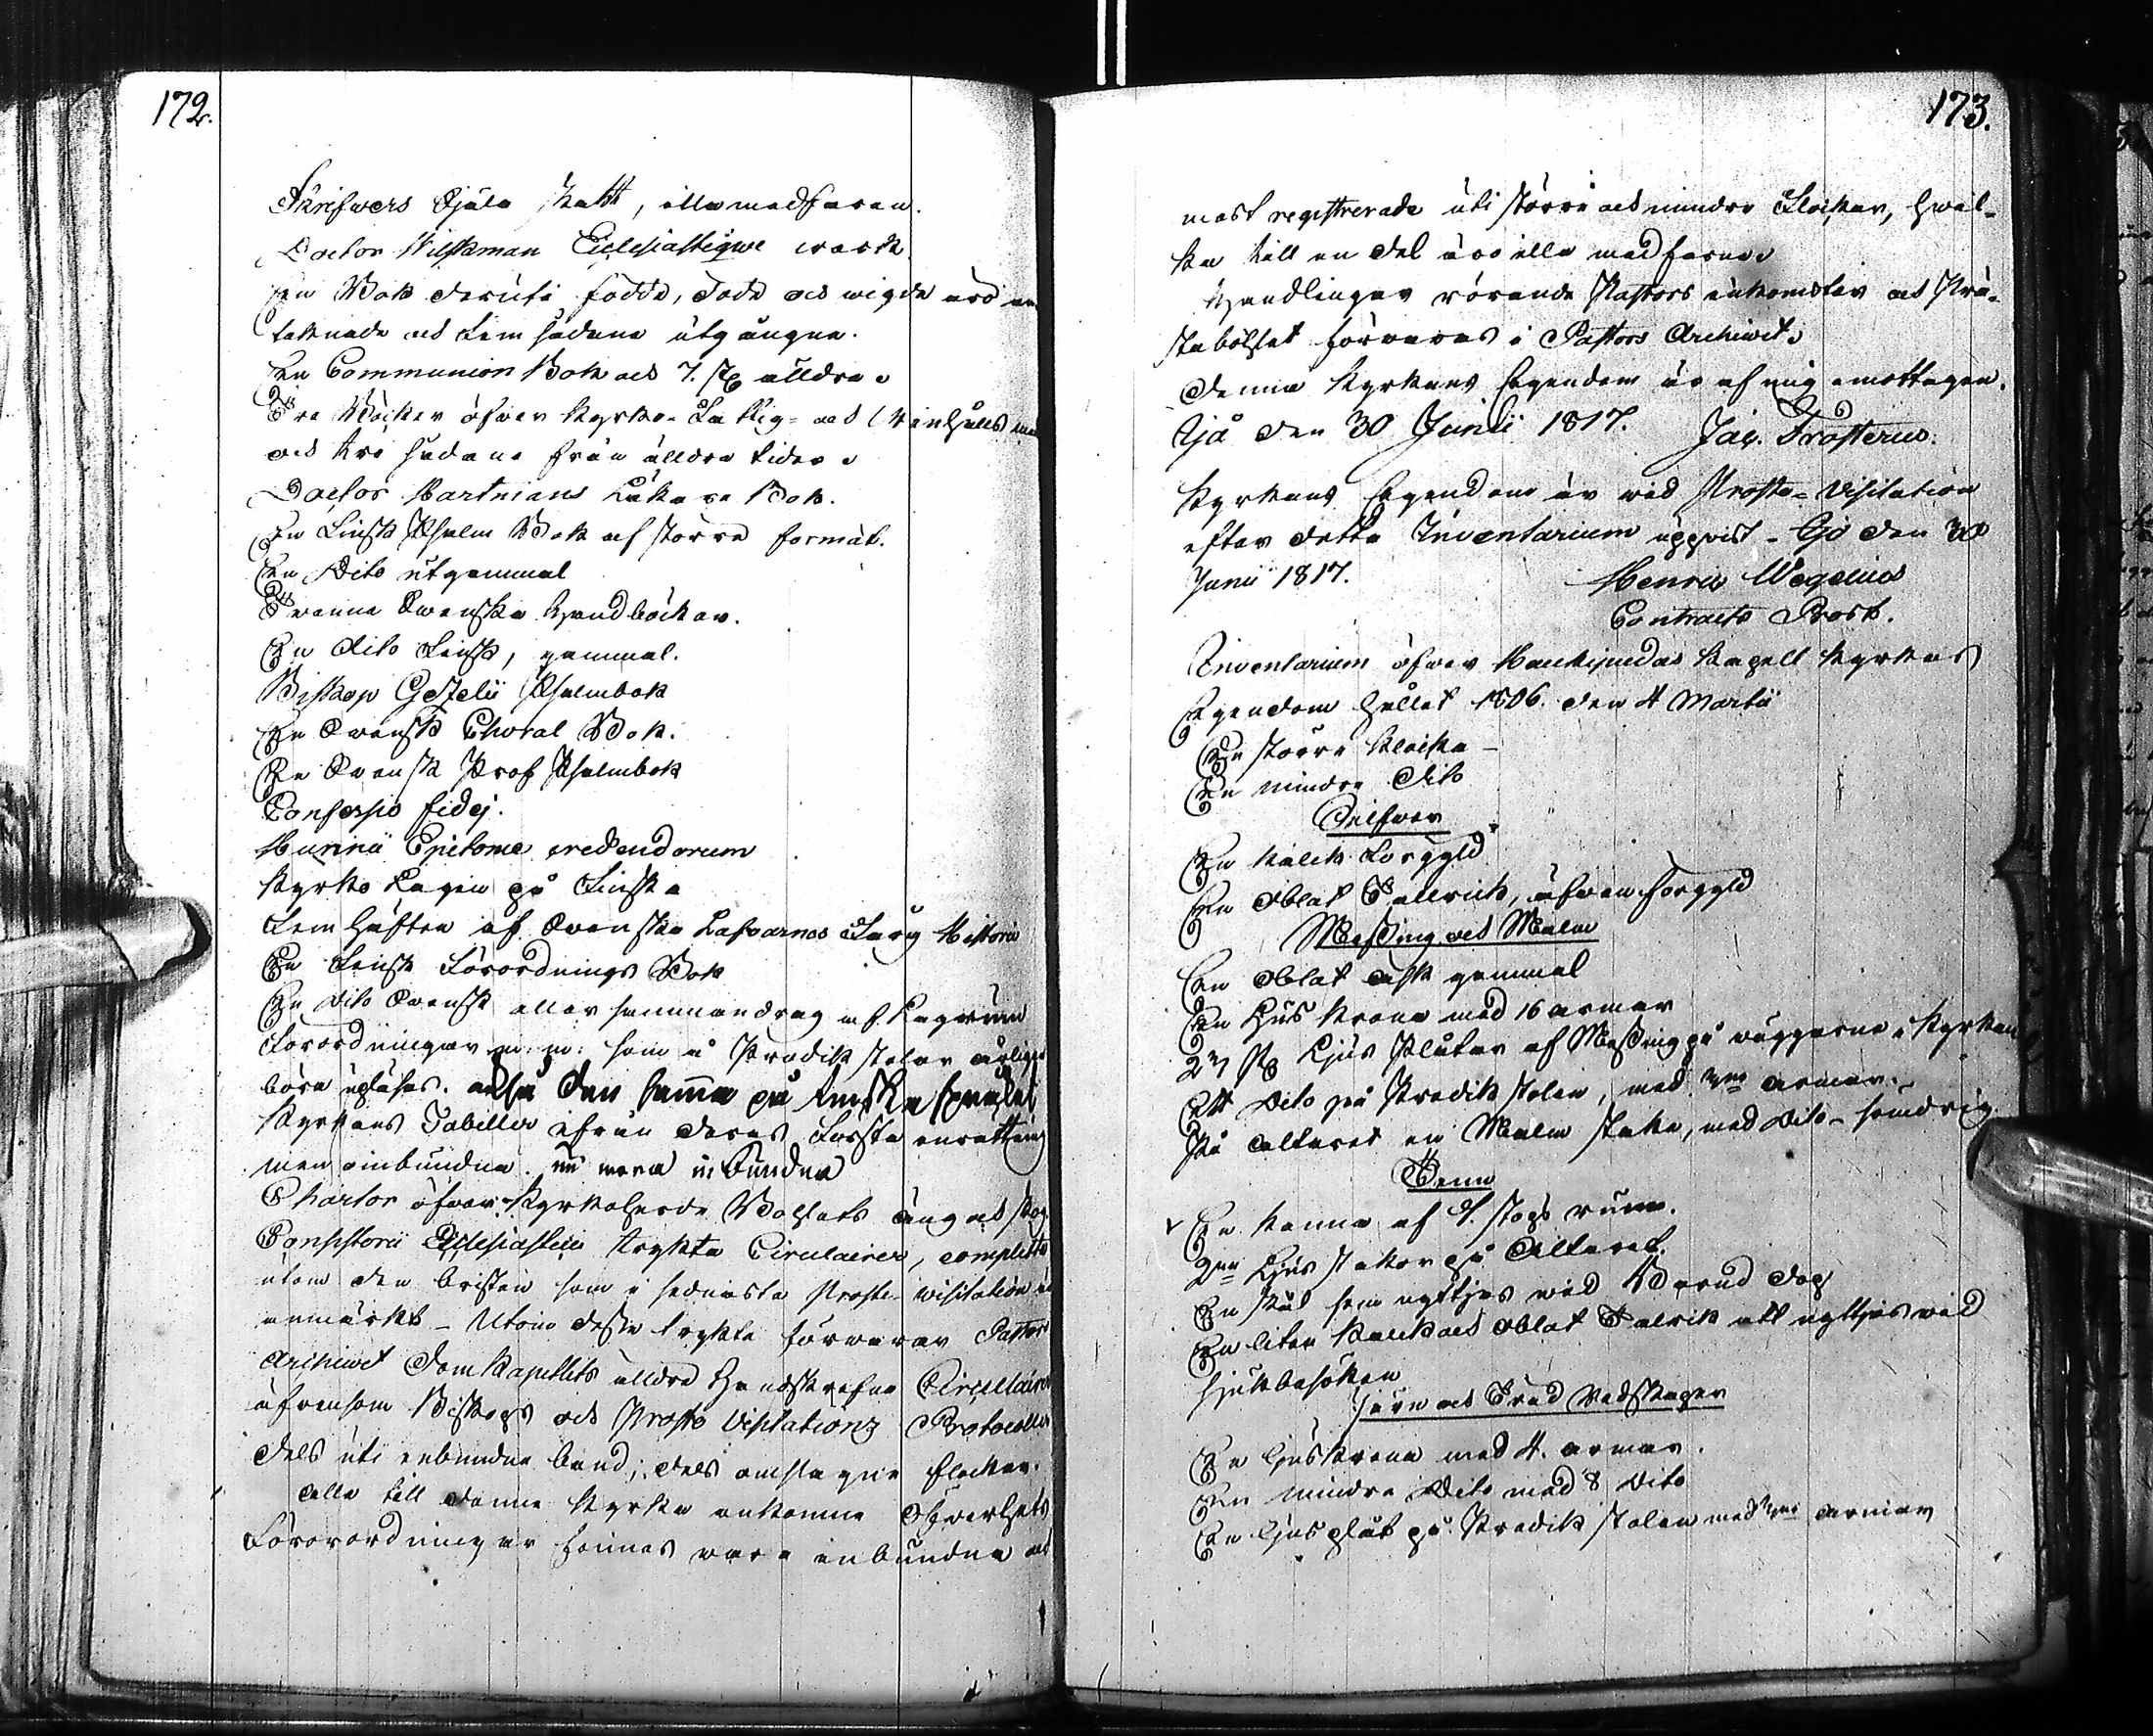 172.
Skrifwers Själa skatt, illa medfaren.
Doctor Wilskman Eclesiastique wärck
En Bok deruti födde, döde och wigde äro an
teknade och Fem sådana utgångna.
En Communion Bok och 7. st. älldre
Tre Böcker öfwer Kyrko- Fattig- och
och tre sådane från älldre tider
Doctor Hartmans Läkare Bok.
En Finsk Psalm Bok af större format.
En Dito utgammal
Twenne Swenska Handböcker.
En dito Finsk, gammal.
Biskop Gezelii Psalmbok
En Swensk Choral Bok.
En Swensk Prof Psalmbok
Confessio fidej.
Munni Epitome credendorum
Kyrko Lagen på Finska
Fem häften af Swenska Lafvarnes Färg Historia
En Finsk Förordnings Bok
En dito Swensk eller sammandrag af Lagrum
Förordningar m: m: som å Predikstolar årligen
böra upläsas. och på den samma på Finska språket
Kyrkans Tabeller ifrån deras första inrättning
men oinbundna. nu mera inbundna
Chartor öfwer Kyrkoherde Bolstets äng och skog
Consistorii Eclesiastici tryckta Circulairer, complette
utom den bristen som i sednaste Proste- wisitation är
anmärkt - Utom desse tryckta förwarar Pastors
Archivet Domkapitlets älldre Handskrefne Circulairer
äfwensom Biskops och Proste Visitations Protocoller
dels uti inbundne band, dels omslagne flockar.
Alla till denne Kyrka ankomne Öfwerhets
Förordningar finnas wara inbundna och
173.
mast registrerade uti större och mindre Flockar, hwil-
ka till en del äro illa medfarne
Handlingar rörande Pastors inkomster och Prä-
stabolstet förwaras i Pastors Archivet.
Denna Kyrkans Egendom är af mig emottagen.
Ijå den 30 Junii 1817. Jac. Frosterus.
Kyrkans Egendom är wid Proste-Visitation
efter detta Inventarium uppwist - Ijo den 30
Junii 1817. Henric Wegelius
Contracts Prost.
Inventarium öfwer Haukipudas Kapell Kyrkas
Egendom hållet 1806. den 4 Martii
En större Klocka -
En mindre Dito
Silfwer
En Kalck Förgyld
En Oblat Tallrick, äfwen förgyld
Messing och Malm
En Oblat ask gammal
En Ljus Krona med 16 armar
27 st. Ljus Plåtar af Messing på wäggarne i Kyrkan
Ett Dito på Predikstolen, med 2ne armar.
På altaret en Malm staka, med Dito - söndrig.
Tenn
En Kanna af 4. stops rum.
2ne Ljus stakar på Altaret.
En skål som nyttjas wid Barnd dop
En liten Kalck och Oblat Talrik att nyttjas wid
sjukbesöken
Järn och Träd Redskaper
En Ljuskrona med 4. armar.
En mindre Dito med 8 dito
En Ljusplåt på Predikstolen med 2ne armar